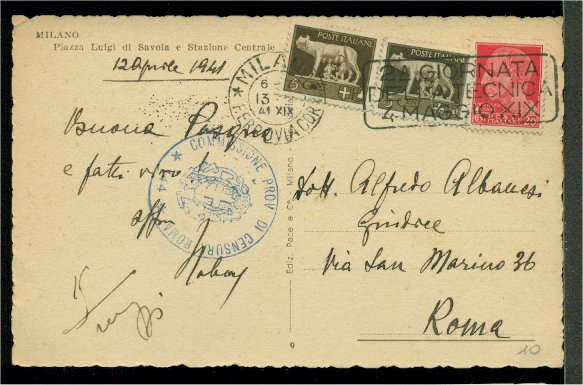 MILANO
Piazza Luigi di Savoia e Stazione Centrale
12 Aprile 1941
Buona Pasqua
e fatti vivo!
Dott. Alfredo Albanesi
Giudice
Via San Marino 36
Roma
POSTE ITALIANE
POSTE ITALIANE
MILANO
6
13
41 XIX
FERROVIA COR
2A GIORNATA
DELLA TECNICA
4 MAGGIO XIX
COMMISSIONE PROV. DI CENSURA ROMA
Ediz. Pace e Co. - Milano
9
10